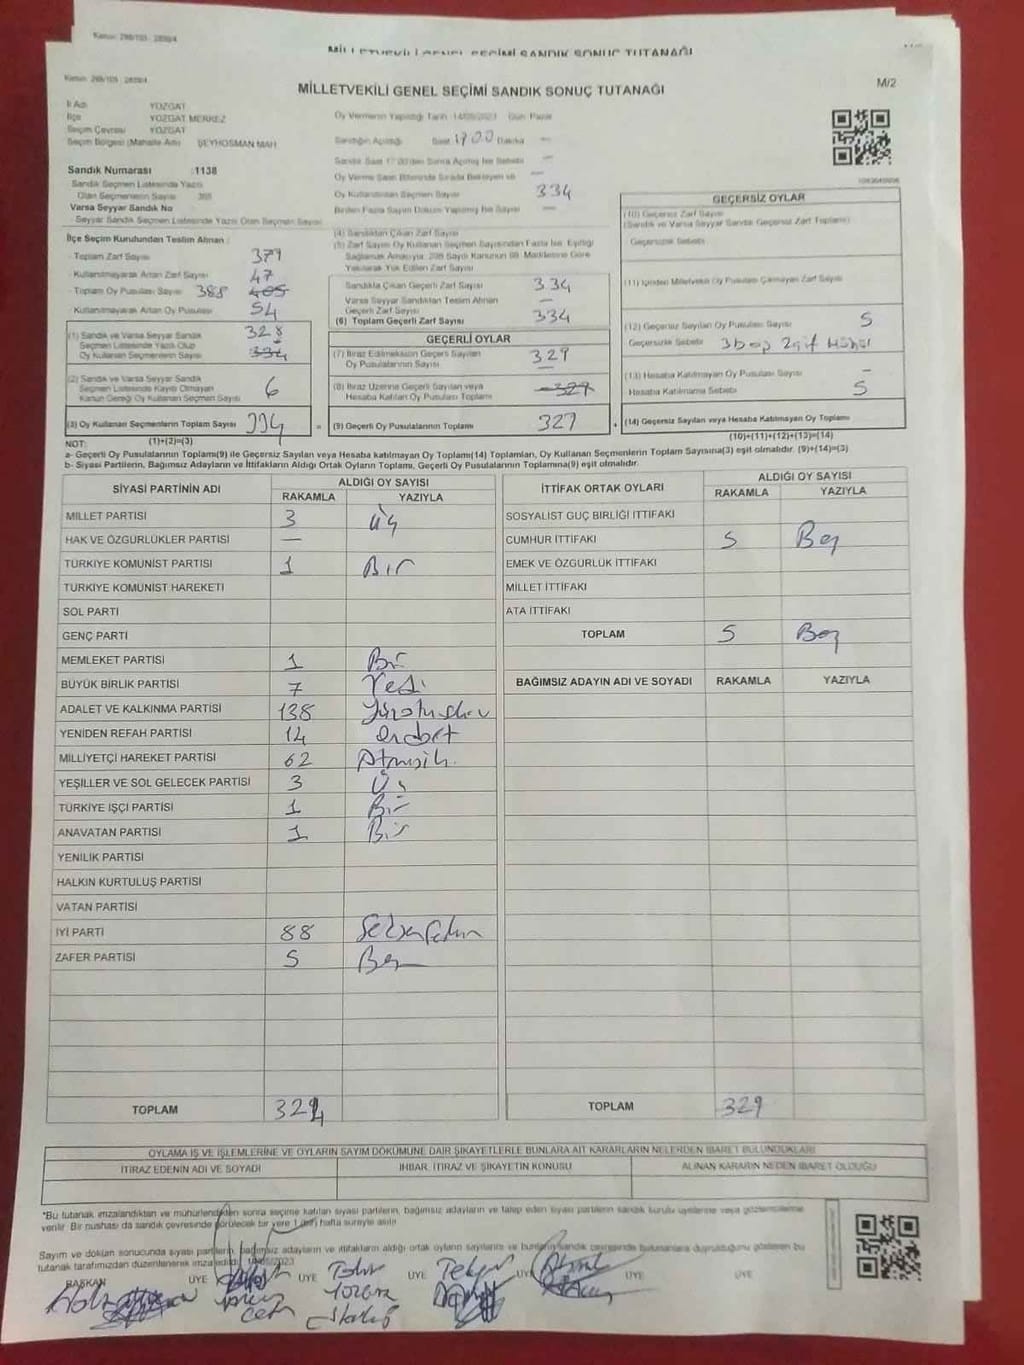 Kanun: 298/103 : 2839/4
MİLLETVEKİLİ GENEL SEÇİMİ SANDIK SONUÇ TUTANAĞI
Kanun: 298/103 : 2839/4
MİLLETVEKİLİ GENEL SEÇİMİ SANDIK SONUÇ TUTANAĞI
M/2
İl Adı YOZGAT
İlçe YOZGAT MERKEZ
Seçim Çevresi YOZGAT
Seçim Bölgesi (Mahalle Adı) ŞEYHOSMAN MAH
Sandık Numarası :1138
Sandık Seçmen Listesinde Yazılı
Olan Seçmenlerin Sayısı
Varsa Seyyar Sandık No
Seyyar Sandık Seçmen Listesinde Yazılı Olan Seçmen Sayısı
Oy Vermenin Yapıldığı Tarih :14/05/2023 Gün: Pazar
Sandığın Açıldığı Saat 17 00 Dakika —
Sandık Saat 17:00'den Sonra Açılmış İse Sebebi —
Oy Verme Saati Bitiminde Sırada Bekleyen —
Oy Kullandırılan Seçmen Sayısı 334
Birden Fazla Sayım Döküm Yapılmış İse Sayısı —
İlçe Seçim Kurulundan Teslim Alınan :
- Toplam Zarf Sayısı 379
- Kullanılmayarak Artan Zarf Sayısı 47
- Toplam Oy Pusulası Sayısı 388 405
- Kullanılmayarak Artan Oy Pusulası 54
(1) Sandık ve Varsa Seyyar Sandık
Seçmen Listesinde Yazılı Olup
Oy Kullanan Seçmenlerin Sayısı 328 334
(2) Sandık ve Varsa Seyyar Sandık
Seçmen Listesinde Kayıtlı Olmayan
Kanun Gereği Oy Kullanan Seçmen Sayısı 6
(3) Oy Kullanan Seçmenlerin Toplam Sayısı 334
(4) Sandıktan Çıkan Zarf Sayısı
(5) Zarf Sayısı Oy Kullanan Seçmen Sayısından Fazla İse, Eşitliği
Sağlamak Amacıyla, 298 Sayılı Kanunun 98. Maddesine Göre
Yakılarak Yok Edilen Zarf Sayısı
Sandıkta Çıkan Geçerli Zarf Sayısı 334
Varsa Seyyar Sandıktan Teslim Alınan
Geçerli Zarf Sayısı —
(6) Toplam Geçerli Zarf Sayısı 334
GEÇERLİ OYLAR
(7) İtiraz Edilmeksizin Geçerli Sayılan
Oy Pusulalarının Sayısı 329
(8) İtiraz Üzerine Geçerli Sayılan veya
Hesaba Katılan Oy Pusulası Toplamı 329
(9) Geçerli Oy Pusulalarının Toplamı 329
GEÇERSİZ OYLAR
(10) Geçersiz Zarf Sayısı
(Sandık ve Varsa Seyyar Sandık Geçersiz Zarf Toplamı)
Geçersizlik Sebebi
(11) İçinden Milletvekili Oy Pusulası Çıkmayan Zarf Sayısı
(12) Geçersiz Sayılan Oy Pusulası Sayısı 5
Geçersizlik Sebebi 3 boş 2 çift Mühür
(13) Hesaba Katılmayan Oy Pusulası Sayısı —
Hesaba Katılmama Sebebi 5
(14) Geçersiz Sayılan veya Hesaba Katılmayan Oy Toplamı
(10)+(11)+(12)+(13)=(14)
NOT: (1)+(2)=(3)
a- Geçerli Oy Pusulalarının Toplamı(9) ile Geçersiz Sayılan veya Hesaba katılmayan Oy Toplamı(14) Toplamları, Oy Kullanan Seçmenlerin Toplam Sayısına(3) eşit olmalıdır. (9)+(14)=(3)
b- Siyasi Partilerin, Bağımsız Adayların ve İttifakların Aldığı Ortak Oyların Toplamı, Geçerli Oy Pusulalarının Toplamına(9) eşit olmalıdır.
SİYASİ PARTİNİN ADI ALDIĞI OY SAYISI
RAKAMLA YAZIYLA
MİLLET PARTİSİ 3 üç
HAK VE ÖZGÜRLÜKLER PARTİSİ —
TÜRKİYE KOMÜNİST PARTİSİ 1 Bir
TÜRKİYE KOMÜNİST HAREKETİ
SOL PARTİ
GENÇ PARTİ
MEMLEKET PARTİSİ 1 Bir
BÜYÜK BİRLİK PARTİSİ 7 Yedi
ADALET VE KALKINMA PARTİSİ 138
YENİDEN REFAH PARTİSİ 14 ondört
MİLLİYETÇİ HAREKET PARTİSİ 62 Atmışik
YEŞİLLER VE SOL GELECEK PARTİSİ 3 Üç
TÜRKİYE İŞÇİ PARTİSİ 1 Bir
ANAVATAN PARTİSİ 1 Bir
YENİLİK PARTİSİ
HALKIN KURTULUŞ PARTİSİ
VATAN PARTİSİ
İYİ PARTİ 88
ZAFER PARTİSİ 5 Beş
TOPLAM 324
İTTİFAK ORTAK OYLARI ALDIĞI OY SAYISI
RAKAMLA YAZIYLA
SOSYALİST GÜÇ BİRLİĞİ İTTİFAKI
CUMHUR İTTİFAKI 5 Beş
EMEK VE ÖZGÜRLÜK İTTİFAKI
MİLLET İTTİFAKI
ATA İTTİFAKI
TOPLAM 5 Beş
BAĞIMSIZ ADAYIN ADI VE SOYADI RAKAMLA YAZIYLA
TOPLAM 329
OYLAMA İŞ VE İŞLEMLERİNE VE OYLARIN SAYIM DÖKÜMÜNE DAİR ŞİKAYETLERLE BUNLARA AİT KARARLARIN NELERDEN İBARET BULUNDUKLARI
İTİRAZ EDENİN ADI VE SOYADI İHBAR, İTİRAZ VE ŞİKAYETİN KONUSU ALINAN KARARIN NEDEN İBARET OLDUĞU
*Bu tutanak imzalandıktan ve mühürlendikten sonra seçime katılan siyasi partilerin, bağımsız adayların ve talep eden siyasi partilerin sandık kurulu üyelerine veya gözlemcilerine
verilir. Bir nüshası da sandık çevresinde görülecek bir yere 1 (bir) hafta süreyle asılır
Sayım ve döküm sonucunda siyasi partilerin, bağımsız adayların ve ittifakların aldığı ortak oyların sayılarını ve bunların sandık çevresinde bulunanlara duyurulduğunu gösteren bu
tutanak tarafımızdan düzenlenerek imza edildi. 14/05/2023
BAŞKAN ÜYE ÜYE ÜYE ÜYE ÜYE ÜYE